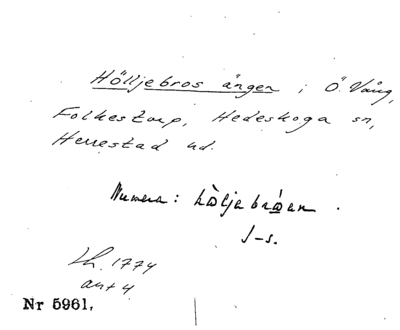 Hölljebros ängen i Ö. Vång,
Folkestorp, Hedeskoga sn,
Herrestad hd.
Numera: hòljebrǿen.
J-s.
Lh. 1774
akt 4
Nr 5961,